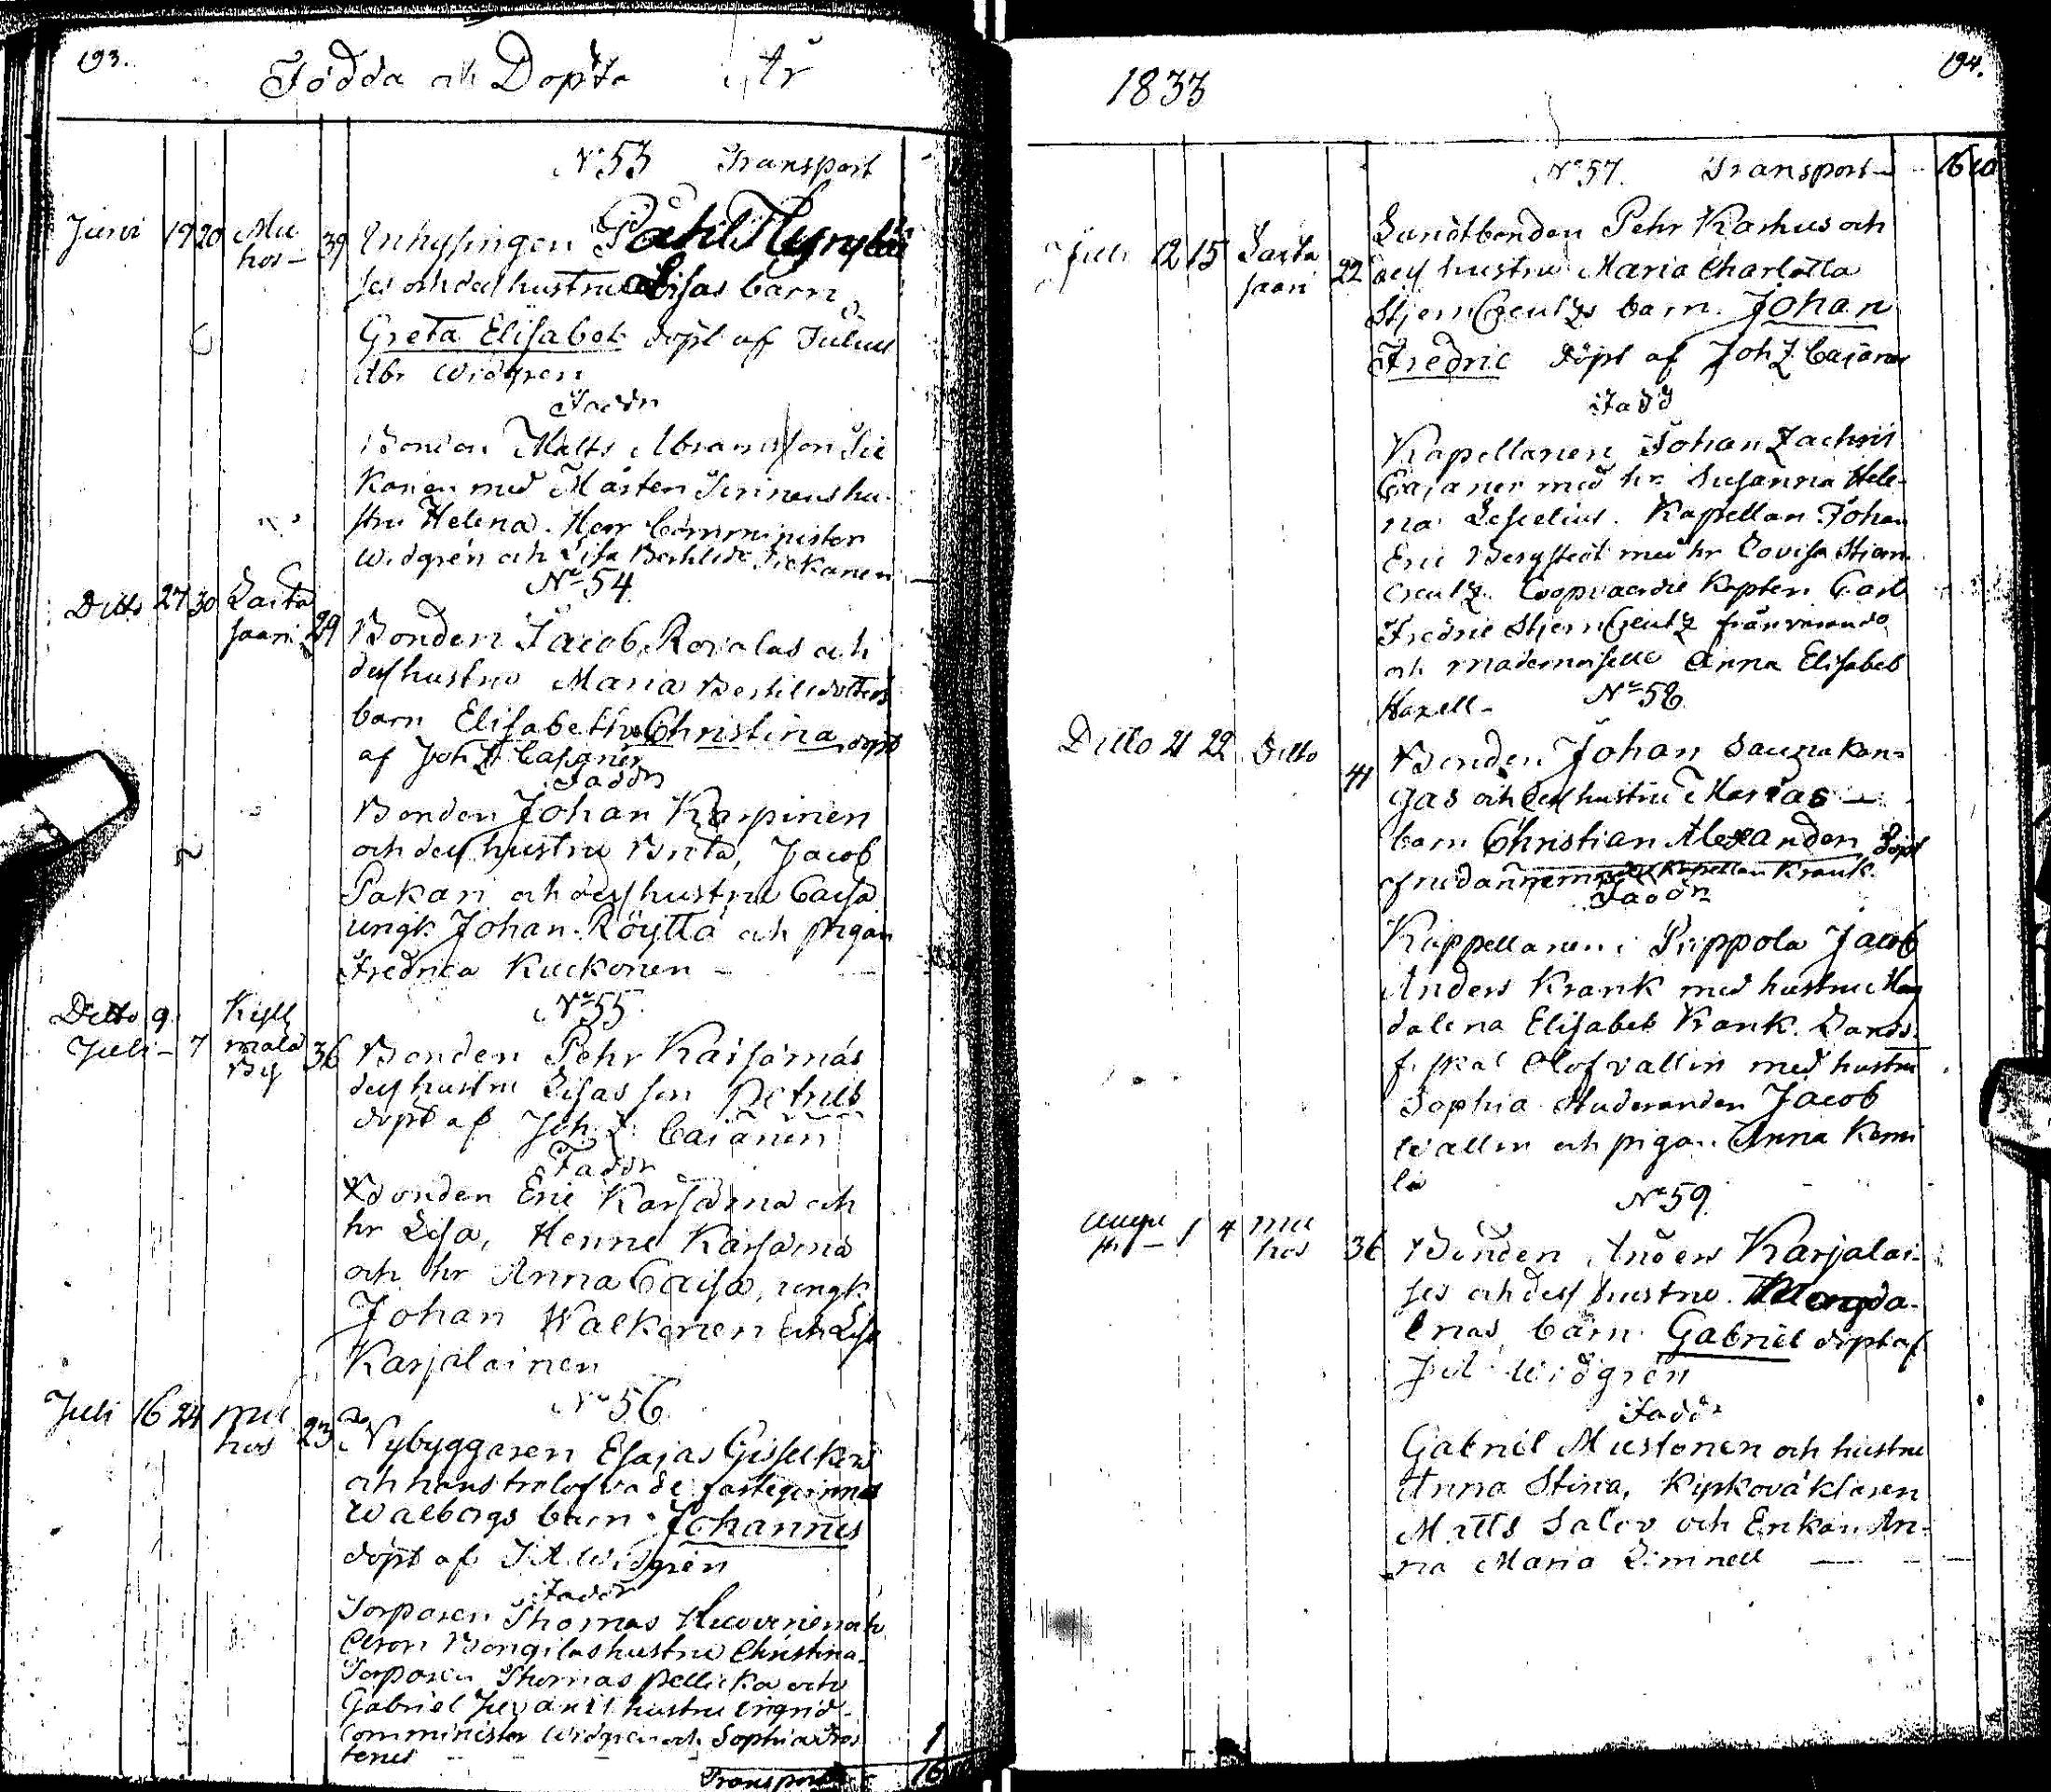 193.
Födda och Döpta År
No 53 Transport
Juni 19 20 Mu
hos 39 Inhysingen Påhl Hyry
ses och dess hustru Lisas barn
Greta Elisabet döpt af Julius
Abr Widgren
Faddr
Bonden Matts Abramsson Sic
kanen med Mårten Serinens hu
stru Helena. Herr Comminister
Widgrén och Lisa Sickanen
No 54
Ditto 27 30 Saita
saari 29 Bonden Jacob Rovalas och
dess hustru Maria Bertilsdotters
barn Elisabetha Christina döpt
af Joh Z Cajaner
Faddr
Bonden Johan Karpinen
och dess hustru Brita, Jacob
Pakari och dess hustru Caisa
ungk. Johan Röyttä och pigan
Fredrica Kuckonen
No 55
Ditto 9 Kyll
Juli 7 mälä 36 Bonden Pehr Karsämäs
By
dess hustru Lisas son Petrus
döpt af Joh. Z. Cajanen
Faddr
Bonden Eric Karsämä och
hr Lisa, Henric Karsämä
och hr Anna Caisa, ungk.
Johan Walkonen och Lisa
Karjalainen
No 56
Juli 16 24 Mu
hos 23 Nybyggaren Esajas
och hans trolofvade fästeqvinnas
Walborgs barn Johannes
döpt af J A Widgrén
Faddr
Torparen Thomas Huovinen och
Aron hustru Christina
Torparen Thomas Pellicka och
Gabriel hustru Ingrid
Comminister Widgren och Sophia
tenius 1
Transport 16
194.
1833
No 57. Transport 16 10
Juli 12 15 Saita
saari 22 Lundtbonden Pehr Karhus och
dess hustru Maria Charlotta
StjernCreutz's barn Johan
Fredric döpt af Joh Z Cajaner
Fadd
Kapellanen Johan Zachris
Cajaner med hr Susanna Hele
na. Kapellan Johan
Eric Bergstedt med hr Lovisa Stiern
creutz. Coopvaerdie Kapten Carl
Fredric StjernCreutz frånvarande
och mademoiselle Anna Elisabet
Haxell
No 58
Ditto 21 22 Ditto
41 Bonden Johan Saunakan
gas och dess hustru Marias
barn Christian Alexander döpt
af nedannemnde Kapellan Krank
Faddr
Kappellanen i Pippola Jacob
Anders Krank med hustru Mag
dalena Elisabet Krank. Lands
fiskal Olof Vallin med hustru
Sophia Studeranden Jacob
Wallin och pigan Anna Kemi
lä
No 59.
Augu
sti 1 4 Mu
hos 36 Bonden Anders Karjalai
ses och dess hustru Magda
lenas barn Gabriel döpt af
Jul Widgrén
Faddr
Gabriel Mustonen och hustru
Anna Stina, Kyrkoväktaren
Matts Salov och Enkan An
na Maria Limnell